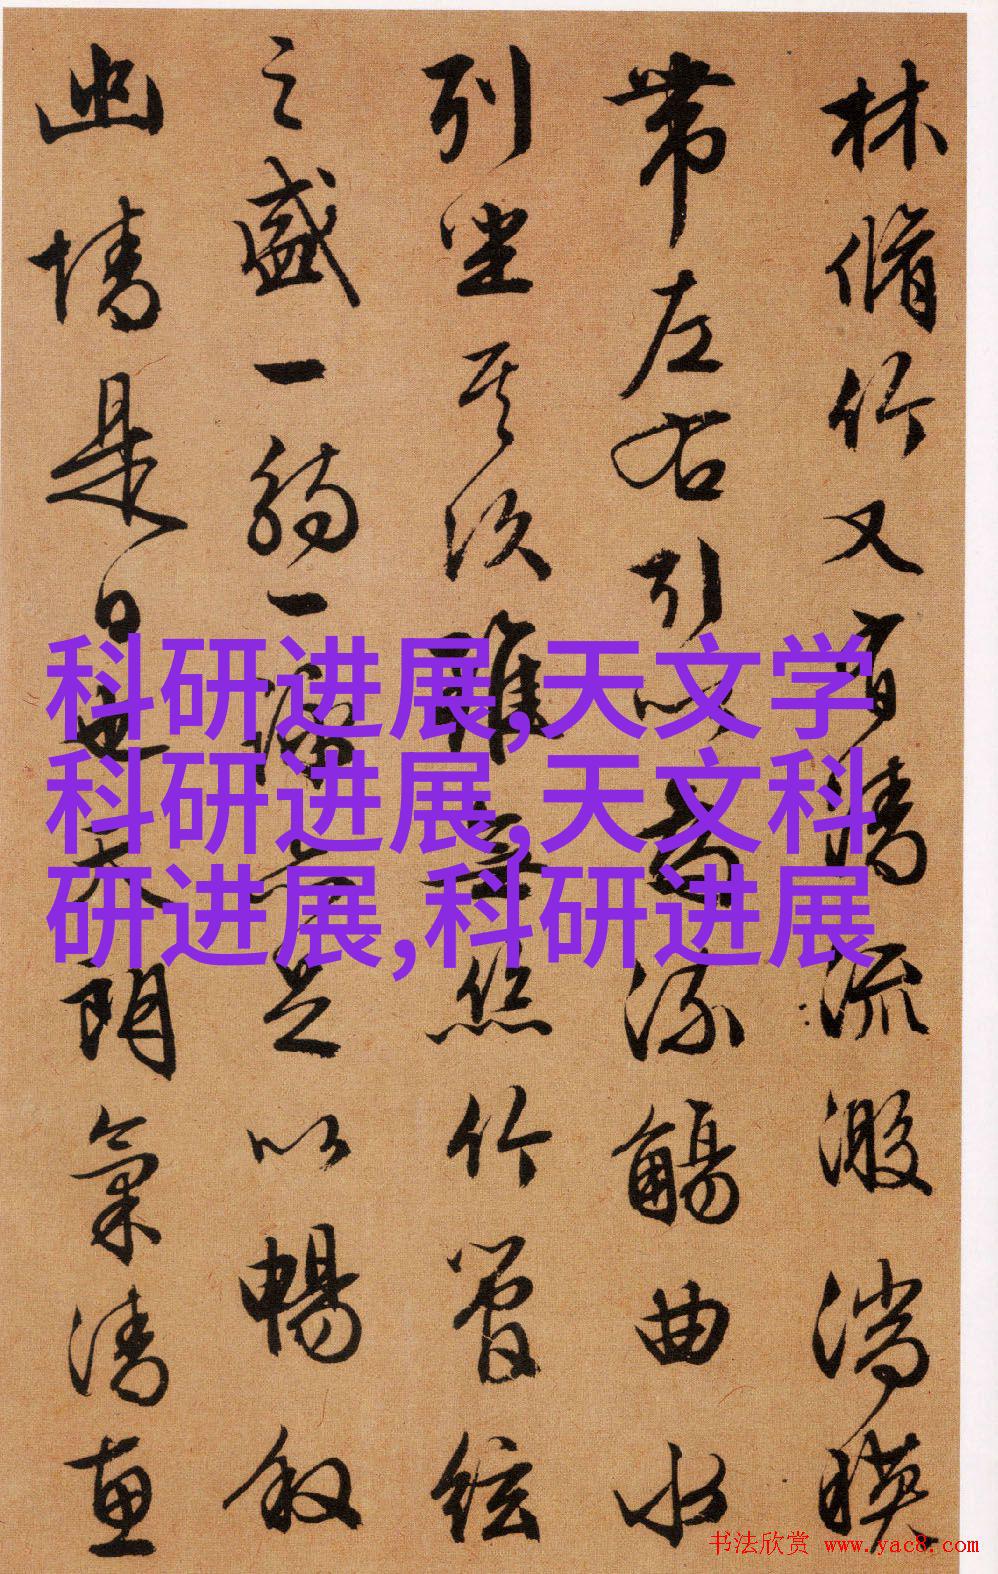 林脩竹又有清流激湍映
帶左右引以為流觴曲水
列坐其次雖無絲竹管絃
之盛一觴一詠亦足以暢敘
幽情是日也天朗氣清惠
科研进展,天文学
科研进展,天文科
研进展,科研进展
书法欣赏 www.yac8.com